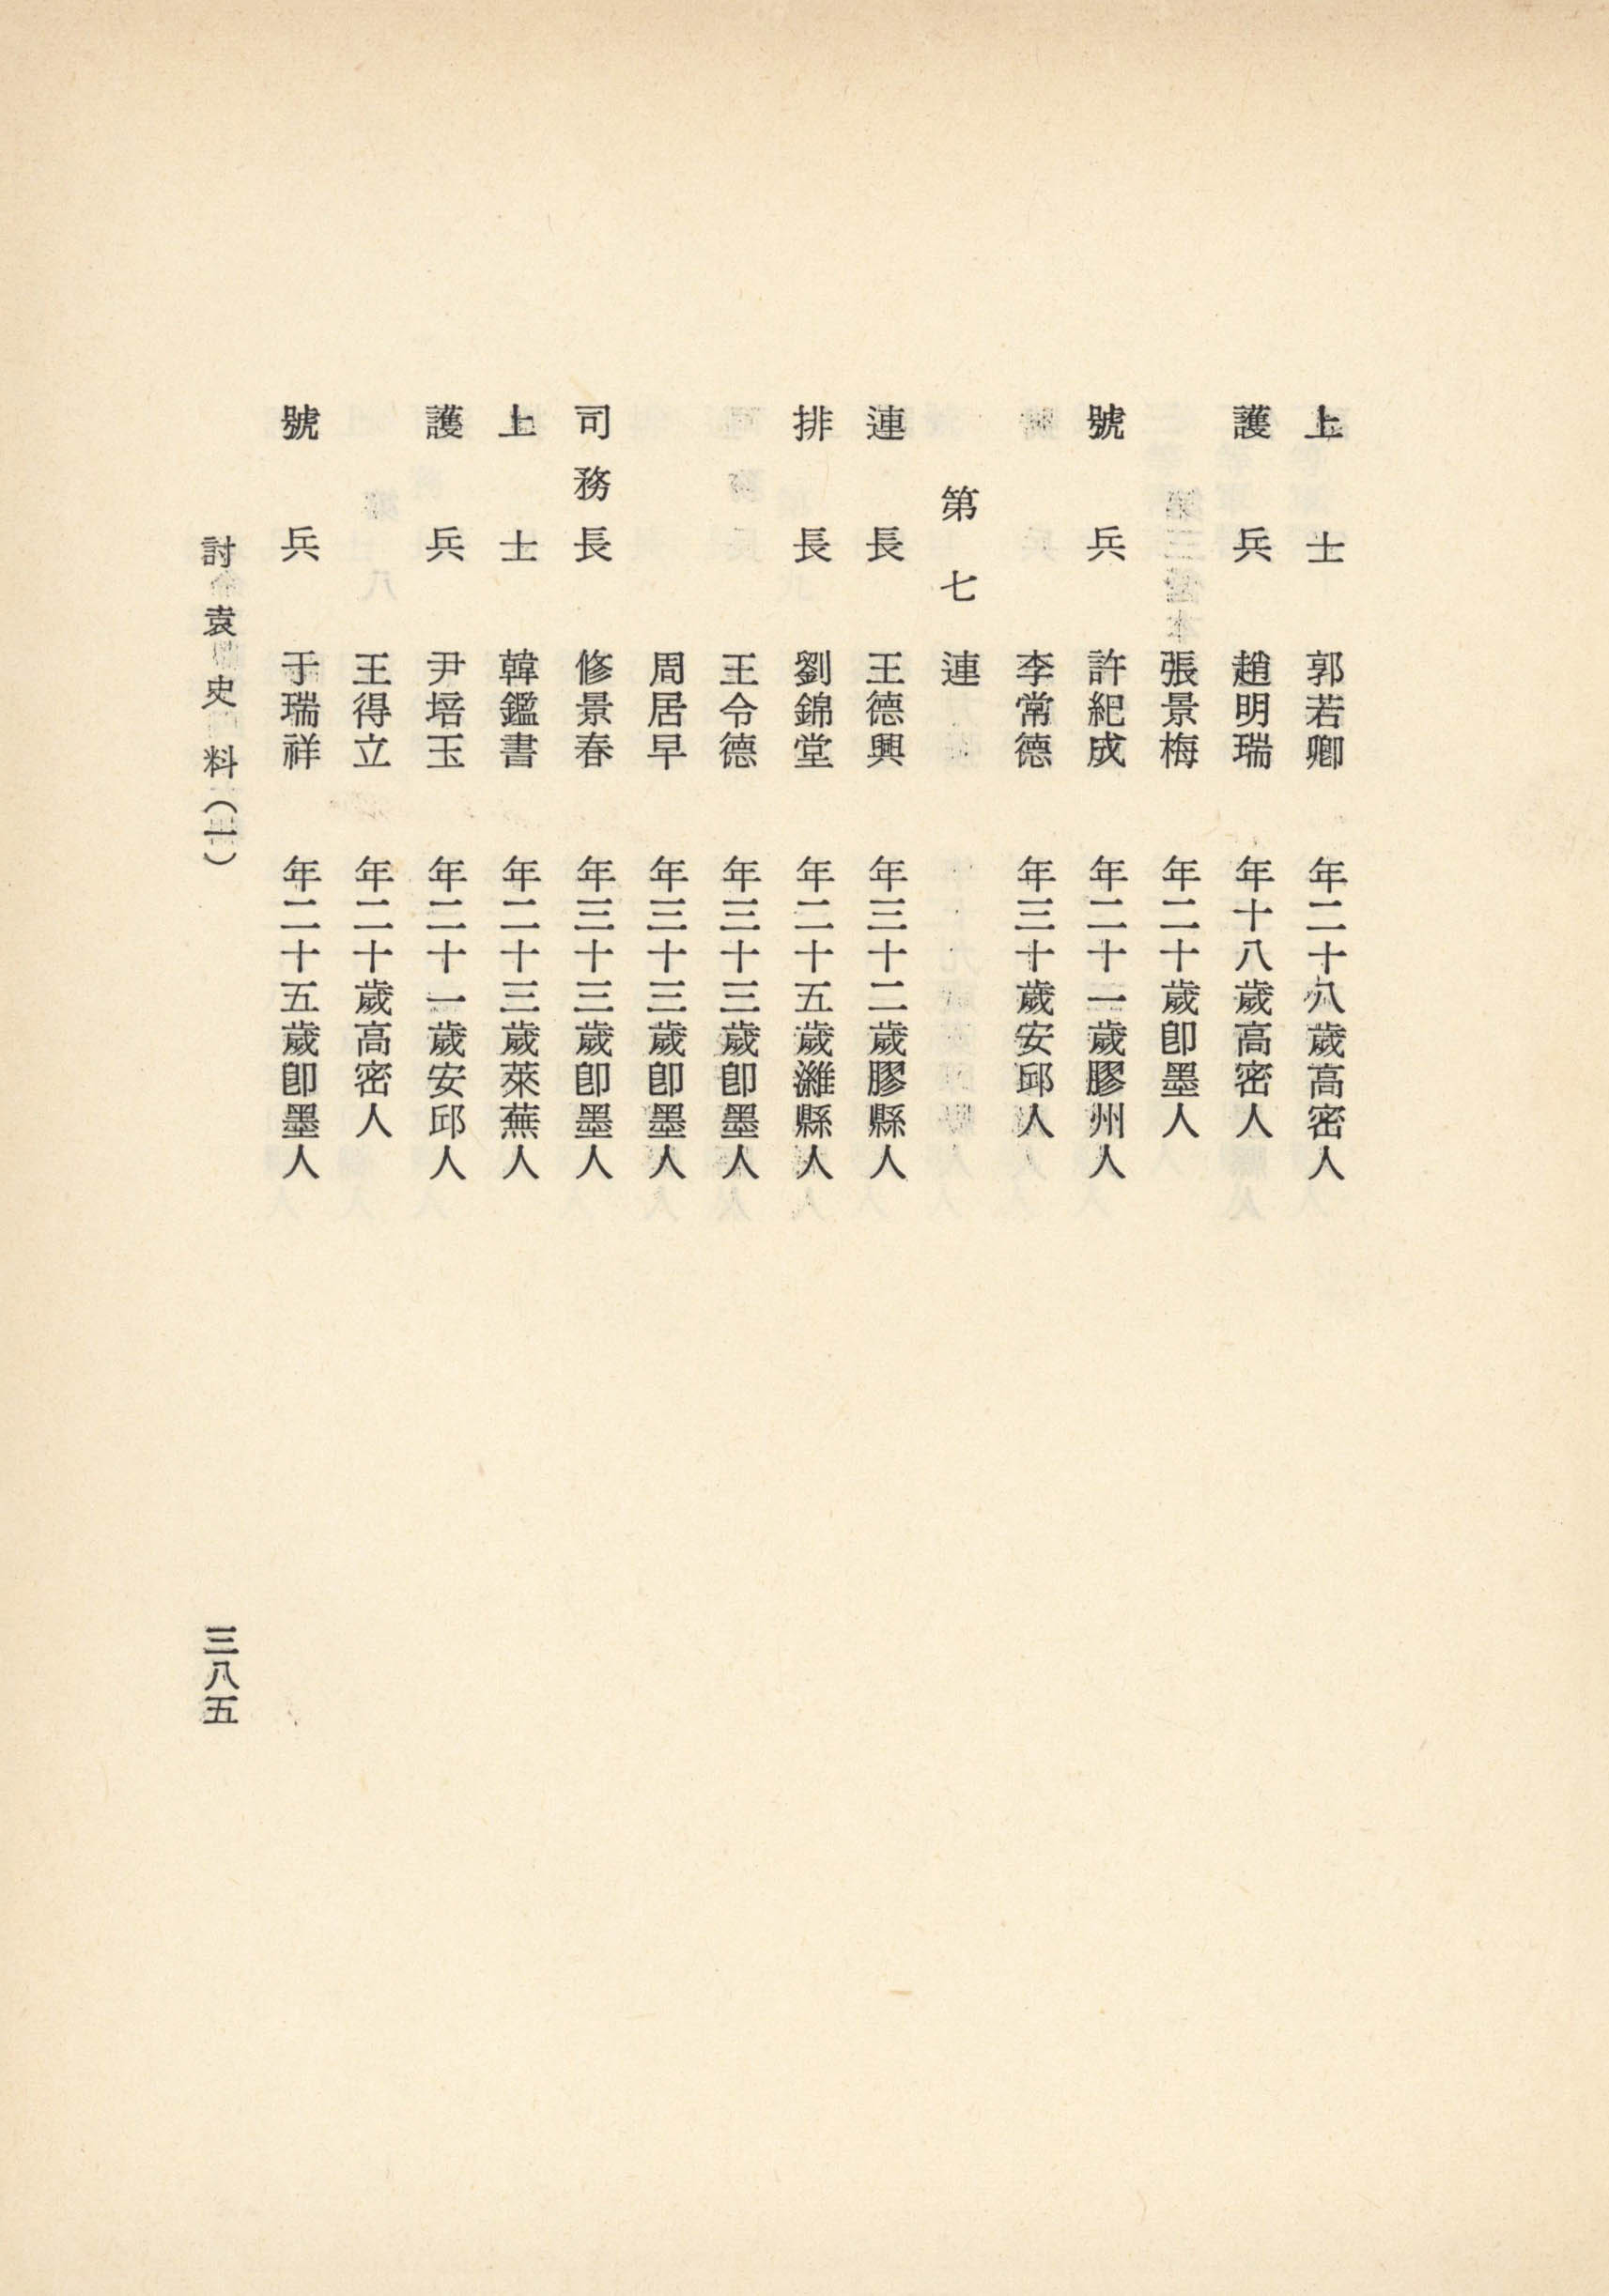 上士　郭若卿　年二十八歲高密人
護兵　趙明瑞　年十八歲高密人
張景梅　年二十歲卽墨人
號兵　許紀成　年二十一歲膠州人
李常德　年三十歲安邱人
第七連
連長　王德興　年三十二歲膠縣人
排長　劉錦堂　年二十五歲濰縣人
王令德　年三十三歲卽墨人
周居早　年三十三歲卽墨人
司務長　修景春　年三十三歲卽墨人
上士　韓鑑書　年二十三歲萊蕪人
護兵　尹培玉　年二十一歲安邱人
王得立　年二十歲高密人
號兵　于瑞祥　年二十五歲卽墨人
討袁史料（一）
三八五